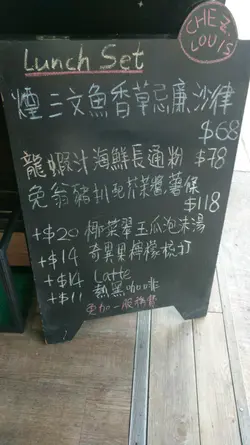 CHEZ LOUIS
Lunch Set
煙三文魚香草忌廉沙律
$68
龍蝦汁海鮮長通粉 $78
免翁豬扒配芥菜醬薯條
$118
+$20 椰菜翠玉瓜泡沫湯
+$14 奇異果檸檬梳打
+$14 Latte
+$11 熱黑咖啡
另加一服務費